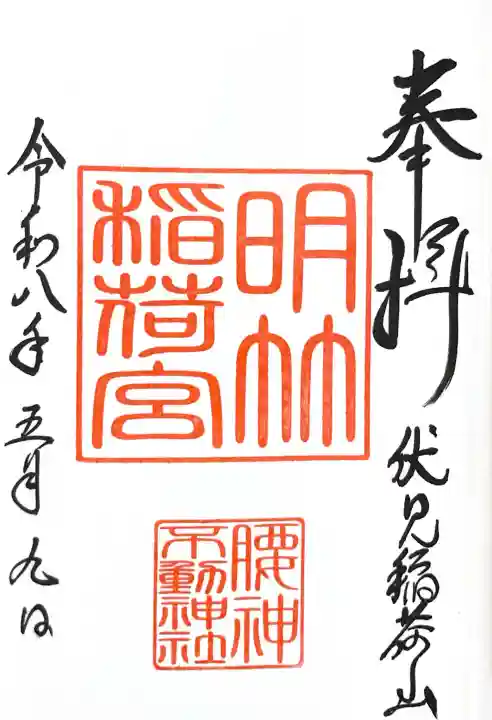 奉拝
伏見稲荷山
明竹
稲荷宮
腰神
不動神社
令和八年 五月 九日